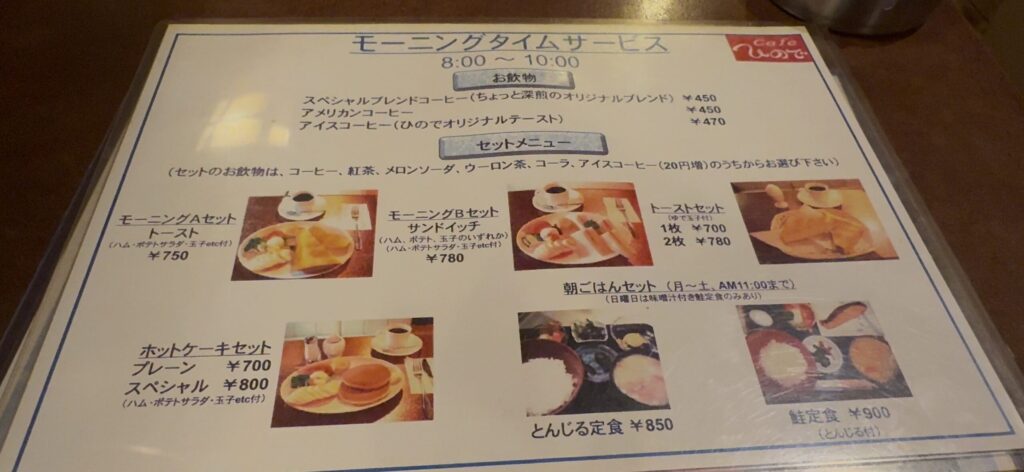 モーニングタイムサービス
Cafe
ひので
8:00 ～ 10:00
お飲物
スペシャルブレンドコーヒー(ちょっと深煎のオリジナルブレンド) ￥450
アメリカンコーヒー ￥450
アイスコーヒー(ひのでオリジナルテースト) ￥470
セットメニュー
(セットのお飲物は、コーヒー、紅茶、メロンソーダ、ウーロン茶、コーラ、アイスコーヒー(20円増)のうちからお選び下さい)
モーニングAセット
トースト
(ハム・ポテトサラダ・玉子etc付)
￥750
モーニングBセット
サンドイッチ
(ハム、ポテト、玉子のいずれか)
(ハム・ポテトサラダ・玉子etc付)
￥780
トーストセット
(ゆで玉子付)
1枚 ￥700
2枚 ￥780
朝ごはんセット (月～土、AM11:00まで)
(日曜日は味噌汁付き鮭定食のみあり)
ホットケーキセット
プレーン ￥700
スペシャル ￥800
(ハム・ポテトサラダ・玉子etc付)
とんじる定食 ￥850
鮭定食 ￥900
(とんじる付)